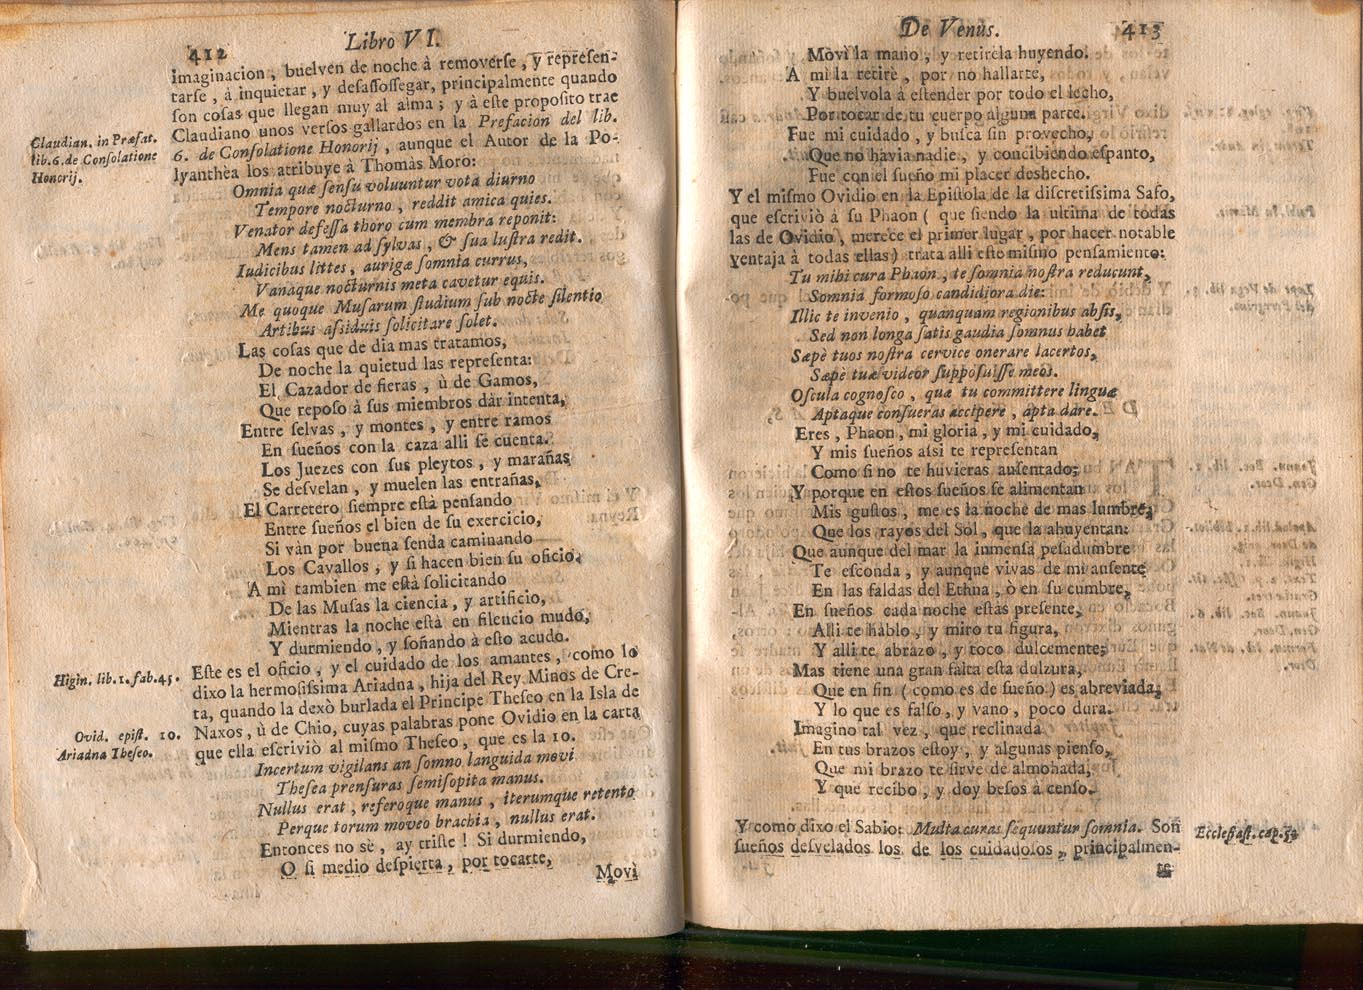 412
Libro VI.
imaginacion, buelven de noche à removerse, y represen-
tarse, à inquietar, y desassossegar, principalmente quando
son cosas que llegan muy al alma; y à este proposito trae
Claudiano unos versos gallardos en la Prefacion del lib.
6. de Consolatione Honorij, aunque el Autor de la Po-
lyanthèa los atribuye à Thomàs Moro:
Claudian. in Præfat.
lib. 6. de Consolatione
Honorij.
Omnia quæ sensu voluuntur vota diurno
Tempore nocturno, reddit amica quies.
Venator defessa thoro cum membra reponit:
Mens tamen ad sylvas, & sua lustra redit.
Iudicibus littes, aurigæ somnia currus,
Vanaque nocturnis meta cavetur equis.
Me quoque Musarum studium sub nocte silentio
Artibus assiduis solicitare solet.
Las cosas que de dia mas tratamos,
De noche la quietud las representa:
El Cazador de fieras, ù de Gamos,
Que reposo à sus miembros dàr intenta,
Entre selvas, y montes, y entre ramos
En sueños con la caza alli se cuenta.
Los Juezes con sus pleytos, y marañas
Se desvelan, y muelen las entrañas,
El Carretero siempre està pensando
Entre sueños el bien de su exercicio,
Si vàn por buena senda caminando
Los Cavallos, y si hacen bien su oficio,
A mì tambien me està solicitando
De las Musas la ciencia, y artificio,
Mientras la noche està en silencio mudo,
Y durmiendo, y soñando à esto acudo.
Este es el oficio, y el cuidado de los amantes, como lo
dixo la hermosissima Ariadna, hija del Rey Minos de Cre-
ta, quando la dexò burlada el Principe Theseo en la Isla de
Naxos, ù de Chio, cuyas palabras pone Ovidio en la carta
que ella escriviò al mismo Theseo, que es la 10.
Higin. lib. 1. fab. 45.
Ovid. epist. 10.
Ariadna Theseo.
Incertum vigilans an somno languida movi
Thesea prensuras semisopita manus.
Nullus erat, referoque manus, iterumque retento
Perque torum moveo brachia, nullus erat.
Entonces no sè, ay triste! Si durmiendo,
O si medio despierta, por tocarte,
Movì
De Venus.
413
Movì la mano, y retirèla huyendo.
A mì la retirè, por no hallarte,
Y buelvola à estender por todo el lecho,
Por tocar de tu cuerpo alguna parte.
Fue mi cuidado, y busca sin provecho,
Que no havia nadie, y concibiendo espanto,
Fue con el sueño mi placer deshecho.
Y el mismo Ovidio en la Epistola de la discretissima Safo,
que escriviò à su Phaon (que siendo la ultima de todas
las de Ovidio, merece el primer lugar, por hacer notable
ventaja à todas ellas) trata alli este mismo pensamiento:
Tu mihi cura Phaon, te somnia nostra reducunt,
Somnia formoso candidiora die:
Illic te invenio, quanquam regionibus absis,
Sed non longa satis gaudia somnus habet
Sæpè tuos nostra cervice onerare lacertos,
Sæpè tuæ videor supposuisse meos.
Oscula cognosco, quæ tu committere linguæ
Aptaque consueras accipere, apta dare.
Eres, Phaon, mi gloria, y mi cuidado,
Y mis sueños assi te representan
Como si no te huvieras ausentado;
Y porque en estos sueños se alimentan
Mis gustos, me es la noche de mas lumbre,
Que los rayos del Sol, que la ahuyentan:
Que aunque del mar la inmensa pesadumbre
Te esconda, y aunque vivas de mi ausente
En las faldas del Ethna, ò en su cumbre,
En sueños cada noche estàs presente,
Alli te hablo, y miro tu figura,
Y alli te abrazo, y toco dulcemente;
Mas tiene una gran falta esta dulzura,
Que en fin (como es de sueño) es abreviada;
Y lo que es falso, y vano, poco dura.
Imagino tal vez, que reclinada
En tus brazos estoy, y algunas pienso,
Que mi brazo te sirve de almohada,
Y que recibo, y doy besos à censo.
Y como dixo el Sabio: Multa curas sequuntur somnia. Son
sueños desvelados los de los cuidadosos, principalmen-
Ecclesiast. cap. 5.
te